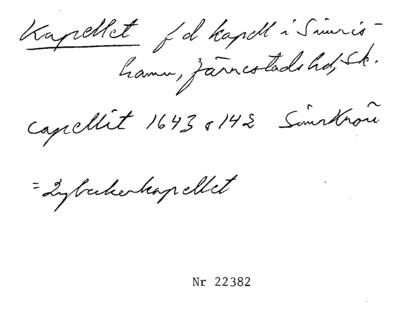 Kapellet f d kapell i Simris-
hamn, Järrestads hd, Sk.
capellit 1643 s 142
= Lybeckerkapellet
Nr 22382